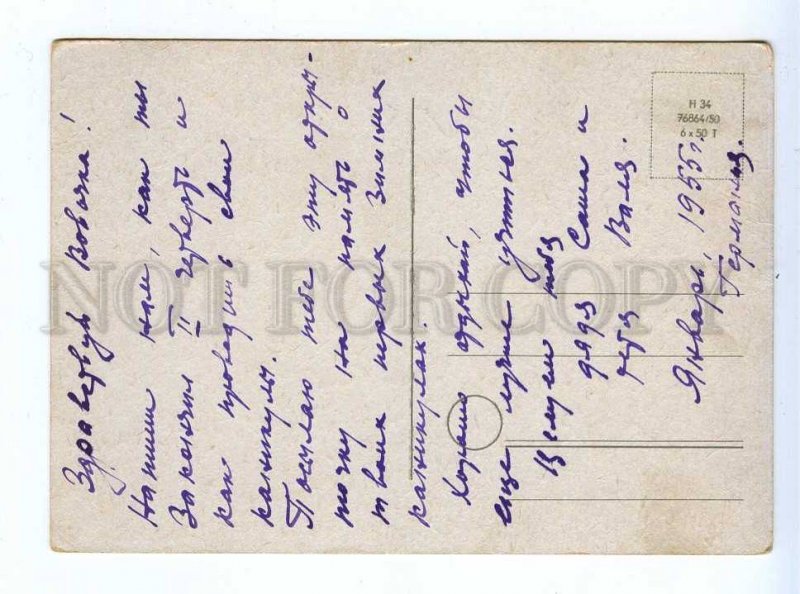 Здравствуй Вовочка!
Напиши нам, как ты
закончил II четверть и
как проводишь свои
каникулы.
Посылаю тебе эту откры-
точку на память о
твоих первых зимних
каникулах.
Хорошо отдыхай, чтобы
еще лучше учиться.
Целуем тебя
дядя Саша и
тетя Валя.
Январь, 1955 г.
Германия.
Н 34
76864/50
6 x 50 T
NOT FOR COPY